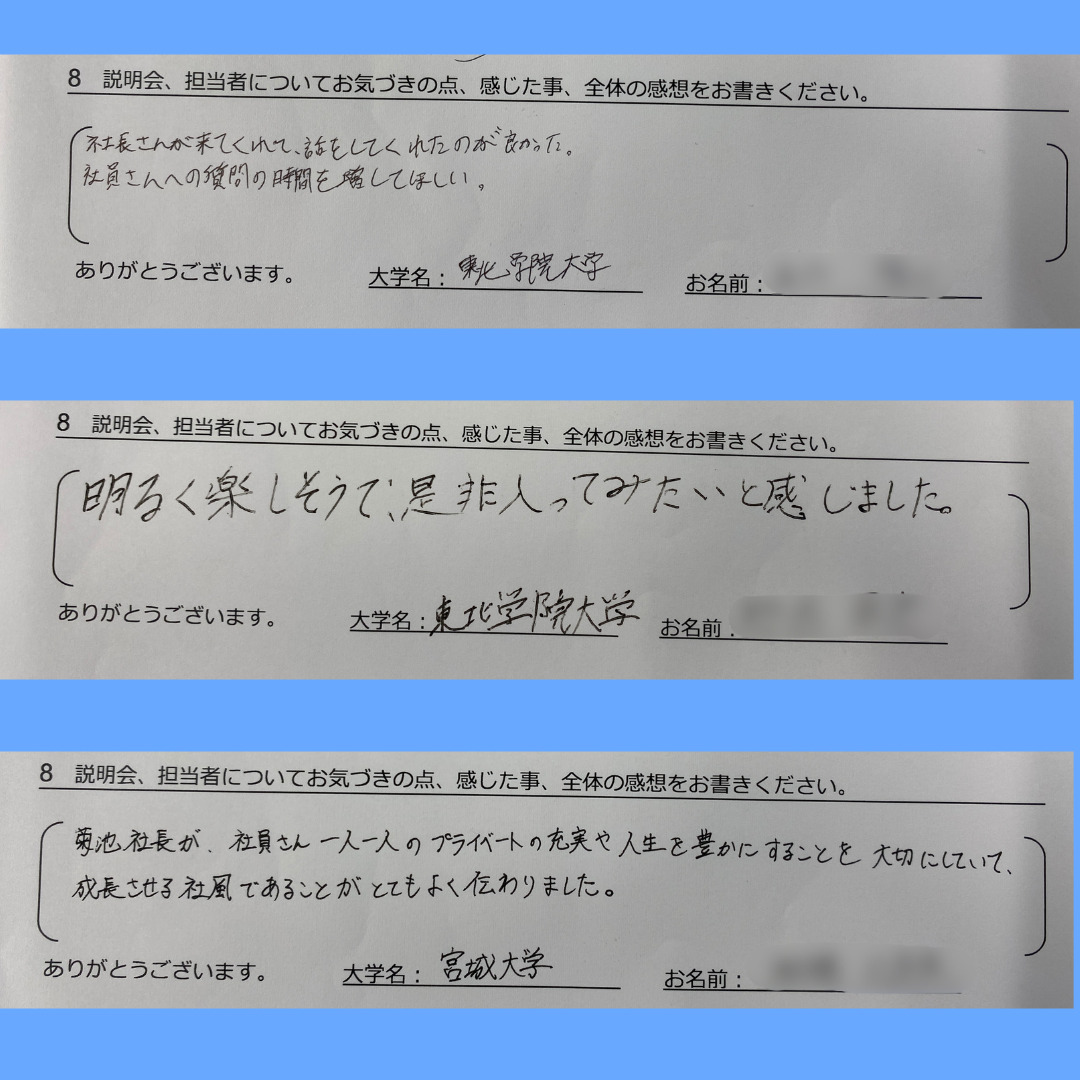 8 説明会、担当者についてお気づきの点、感じた事、全体の感想をお書きください。
社長さんが来てくれて、話をしてくれたのが良かった。
社員さんへの質問の時間を増してほしい。
ありがとうございます。 大学名： 東北学院大学 お名前：
8 説明会、担当者についてお気づきの点、感じた事、全体の感想をお書きください。
明るく楽しそうで、是非入ってみたいと感じました。
ありがとうございます。 大学名： 東北学院大学 お名前：
8 説明会、担当者についてお気づきの点、感じた事、全体の感想をお書きください。
菊池社長が、社員さん一人一人のプライベートの充実や人生を豊かにすることを大切にしていて、
成長させる社風であることがとてもよく伝わりました。
ありがとうございます。 大学名： 宮城大学 お名前：